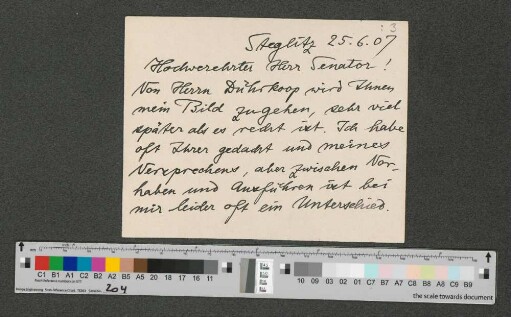 3
Steglitz 25.6.07
Hochverehrter Herr Senator!
Von Herrn Dührkoop wird Ihnen
mein Bild zugehen, sehr viel
später als es recht ist. Ich habe
oft Ihrer gedacht und meines
Versprechens, aber zwischen Vor-
haben und Ausführen ist bei
mir leider oft ein Unterschied.
C1 B1 A1 C2 B2 A2 B5 A5 20 18 17 16 11
10 09 03 02 01 C7 B7 A7 C8 B8 A8 C9 B9
204
the scale towards document